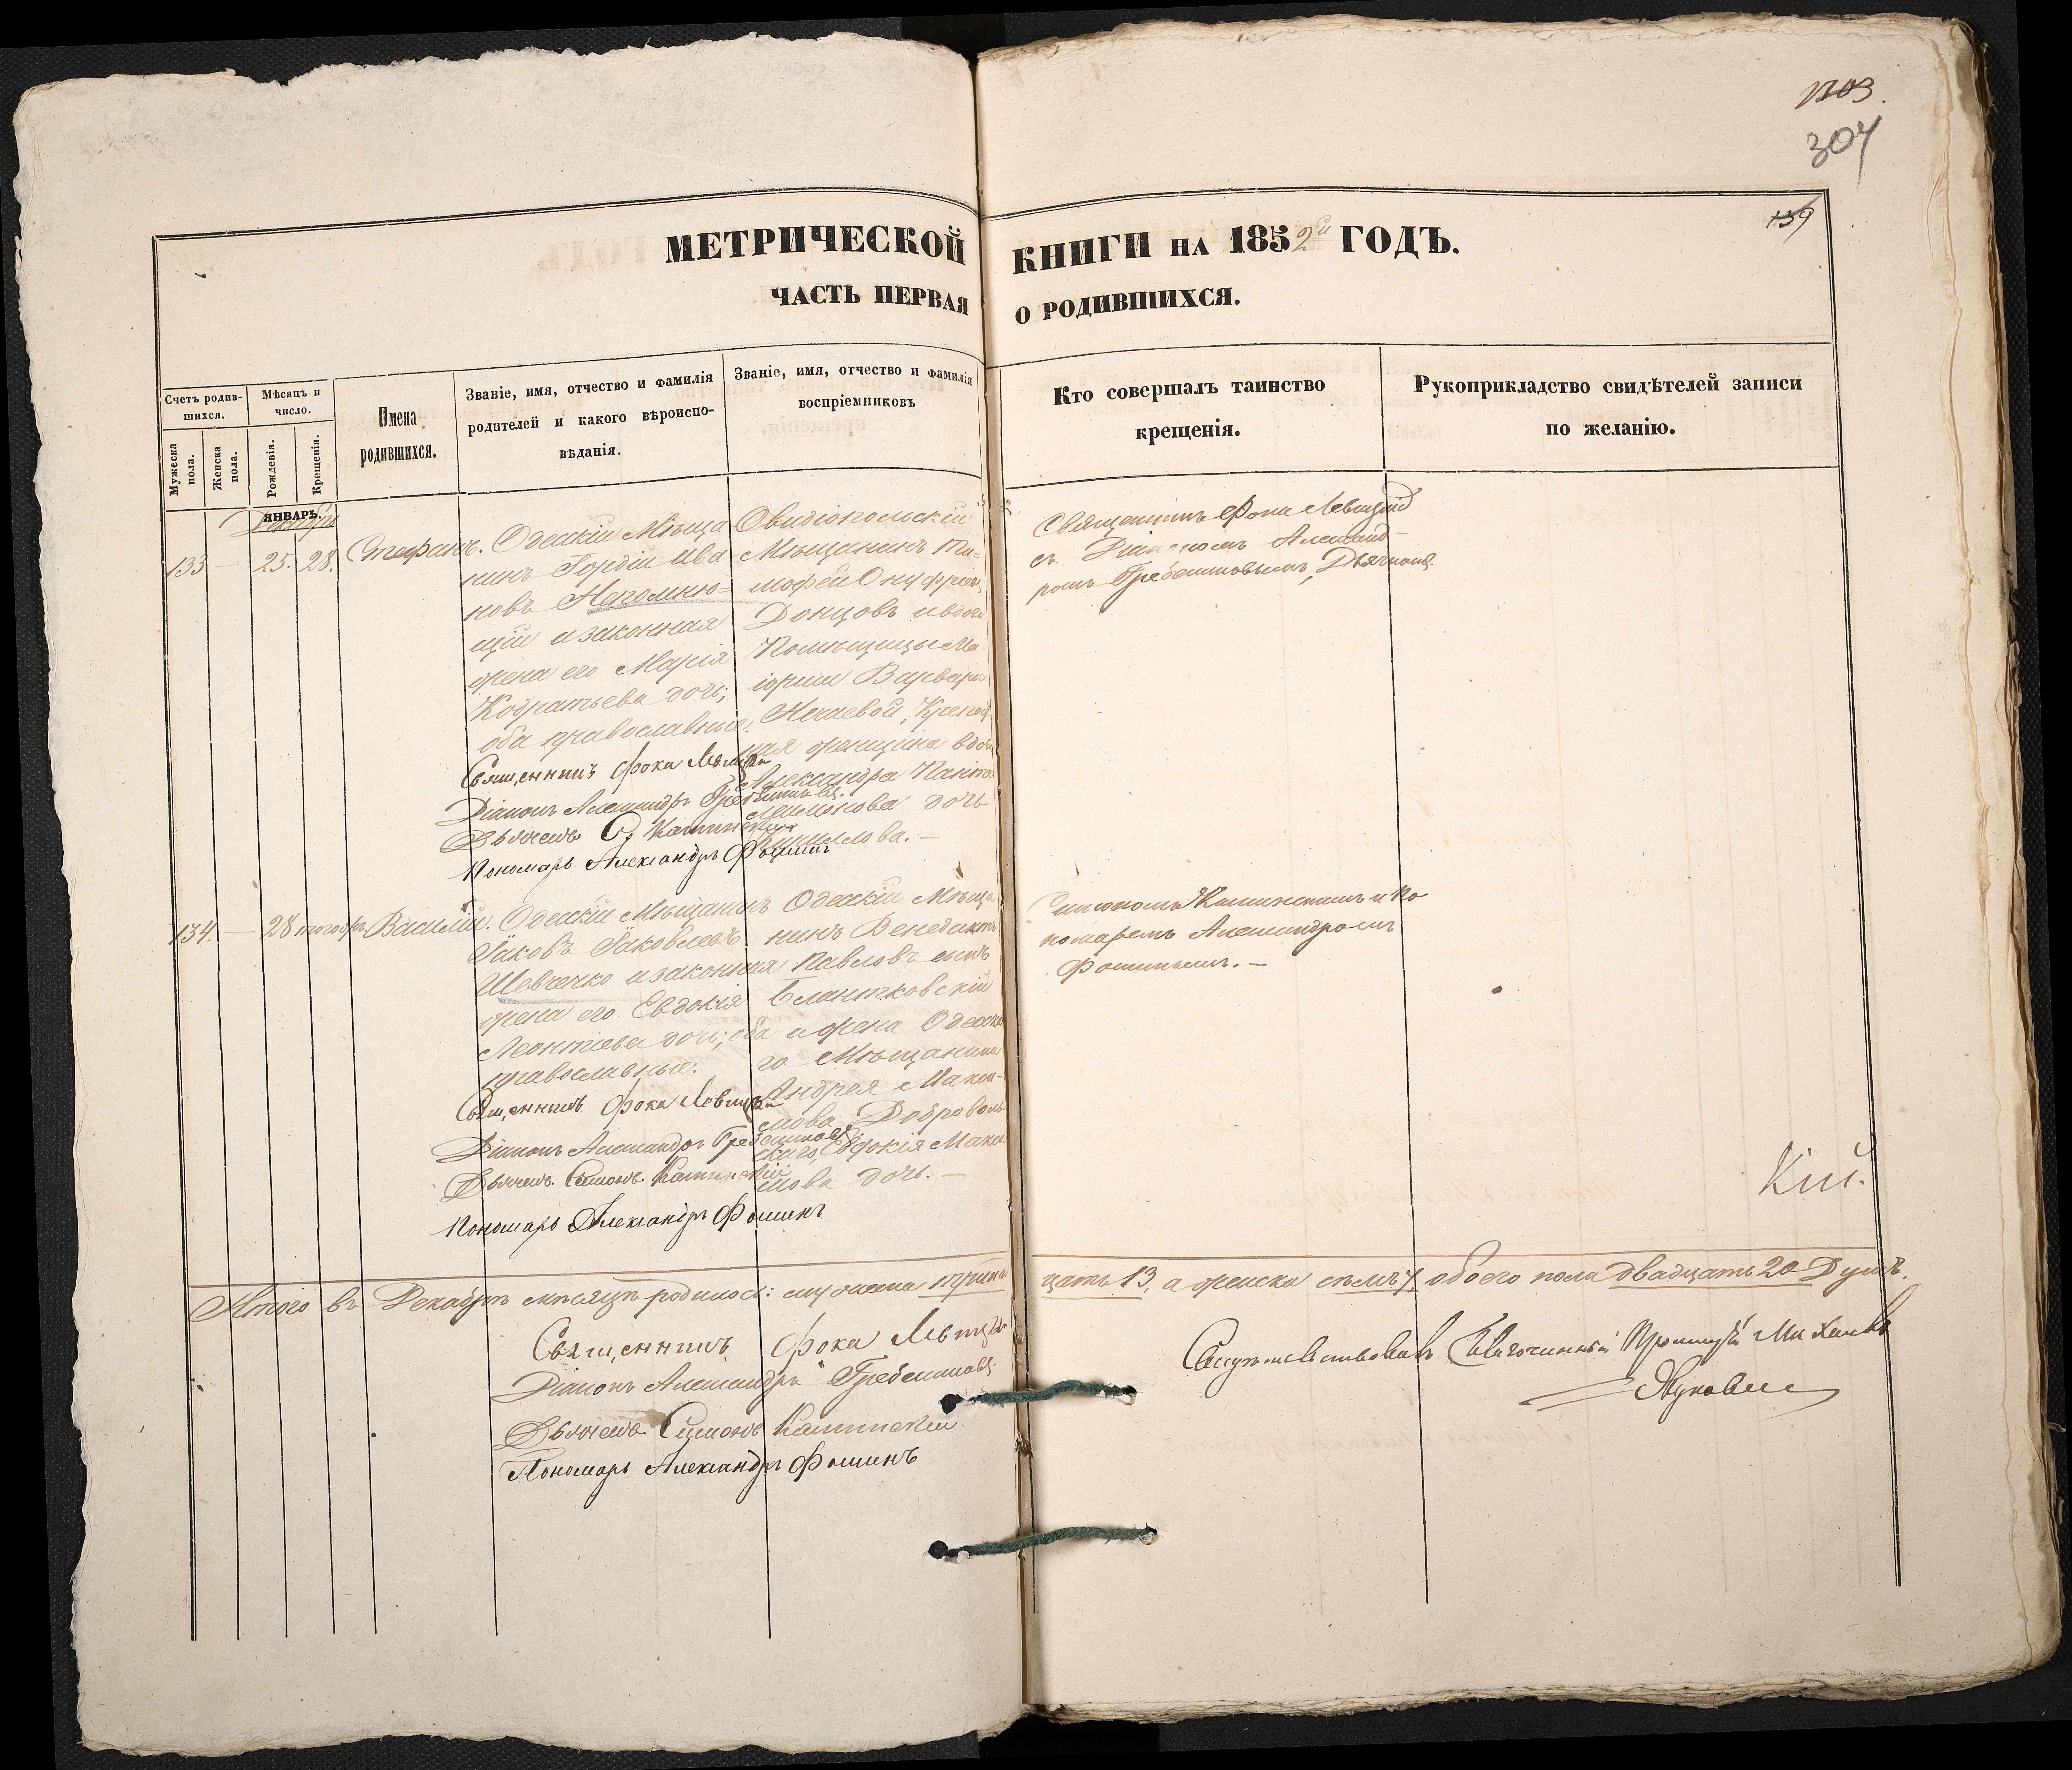 1303.
304
139
МЕТРИЧЕСКОЙ КНИГИ НА 1852й ГОДЪ.
ЧАСТЬ ПЕРВАЯ О РОДИВШИХСЯ.
Счетъ родив-
шихся.
Мужеска
пола.
Женска
пола.
Мѣсяцъ и
число.
Рожденія.
Крещенія.
Имена
родившихся.
Званіе, имя, отчество и фамилія
родителей и какого вѣроиспо-
вѣданія.
Званіе, имя, отчество и фамилія
воспріемниковъ
Кто совершалъ таинство
крещенія.
Рукоприкладство свидѣтелей записи
по желанію.
ЯНВАРЬ.
Декабрь
133 — 25. 28. Стефанъ.
Одесскій Мѣща
нинъ Гордій Ива
новъ Непомню-
щій и законная
жена его Марія
Кодратьева дочь;
оба православные.
Священникъ Фока Левицкій
Діаконъ Александръ Гребенниковъ
Дьячекъ С. Каминскій
Пономарь Александръ Фоминъ
Овидіопольскій
Мѣщанинъ Ти-
мофей Онуфріевъ
Донцовъ и вдовы
Помѣщицы Ма-
іорши Варвары
Нечаевой, Крепост
ная женщина вдова
Александра Панте
леймонова дочь
Свящeнникъ Фока Левицкій
съ Діакономъ Александ-
ромъ Гребенниковымъ, Дьячкомъ
134. — 28 тогожъ Василій.
Одесскій Мѣщанинъ
Іаковъ Іаковлевъ
Шевченко и законная
жена его Евдокія
Леонтіева дочь; оба
православные.
Священникъ Фока Левицкій
Діаконъ Александръ Гребенниковъ
Дьячекъ Симонъ Каминскій
Пономарь Александръ Фоминъ
Одесскій Мѣща
нинъ Венедиктъ
Павловъ сынъ
и жена Одесска
го Мѣщанина
Андрея Макси-
мова Доброволь
скаго, Евдокія Макси
мова дочь. —
Симономъ Каминскимъ и По
номаремъ Александромъ
Фоминымъ. —
Кій.
Итого въ Декабрѣ мѣсяцѣ родилось: мужеска трина
цать 13, а женска семь 7, обоего пола двадцать 20 Душъ.
Священникъ Фока Левицкій
Діаконъ Александръ Гребенниковъ
Дьячекъ Симонъ Каминскій
Пономарь Александръ Фоминъ
Свидѣтельствовалъ Благочинный Протоіерей Михаилъ